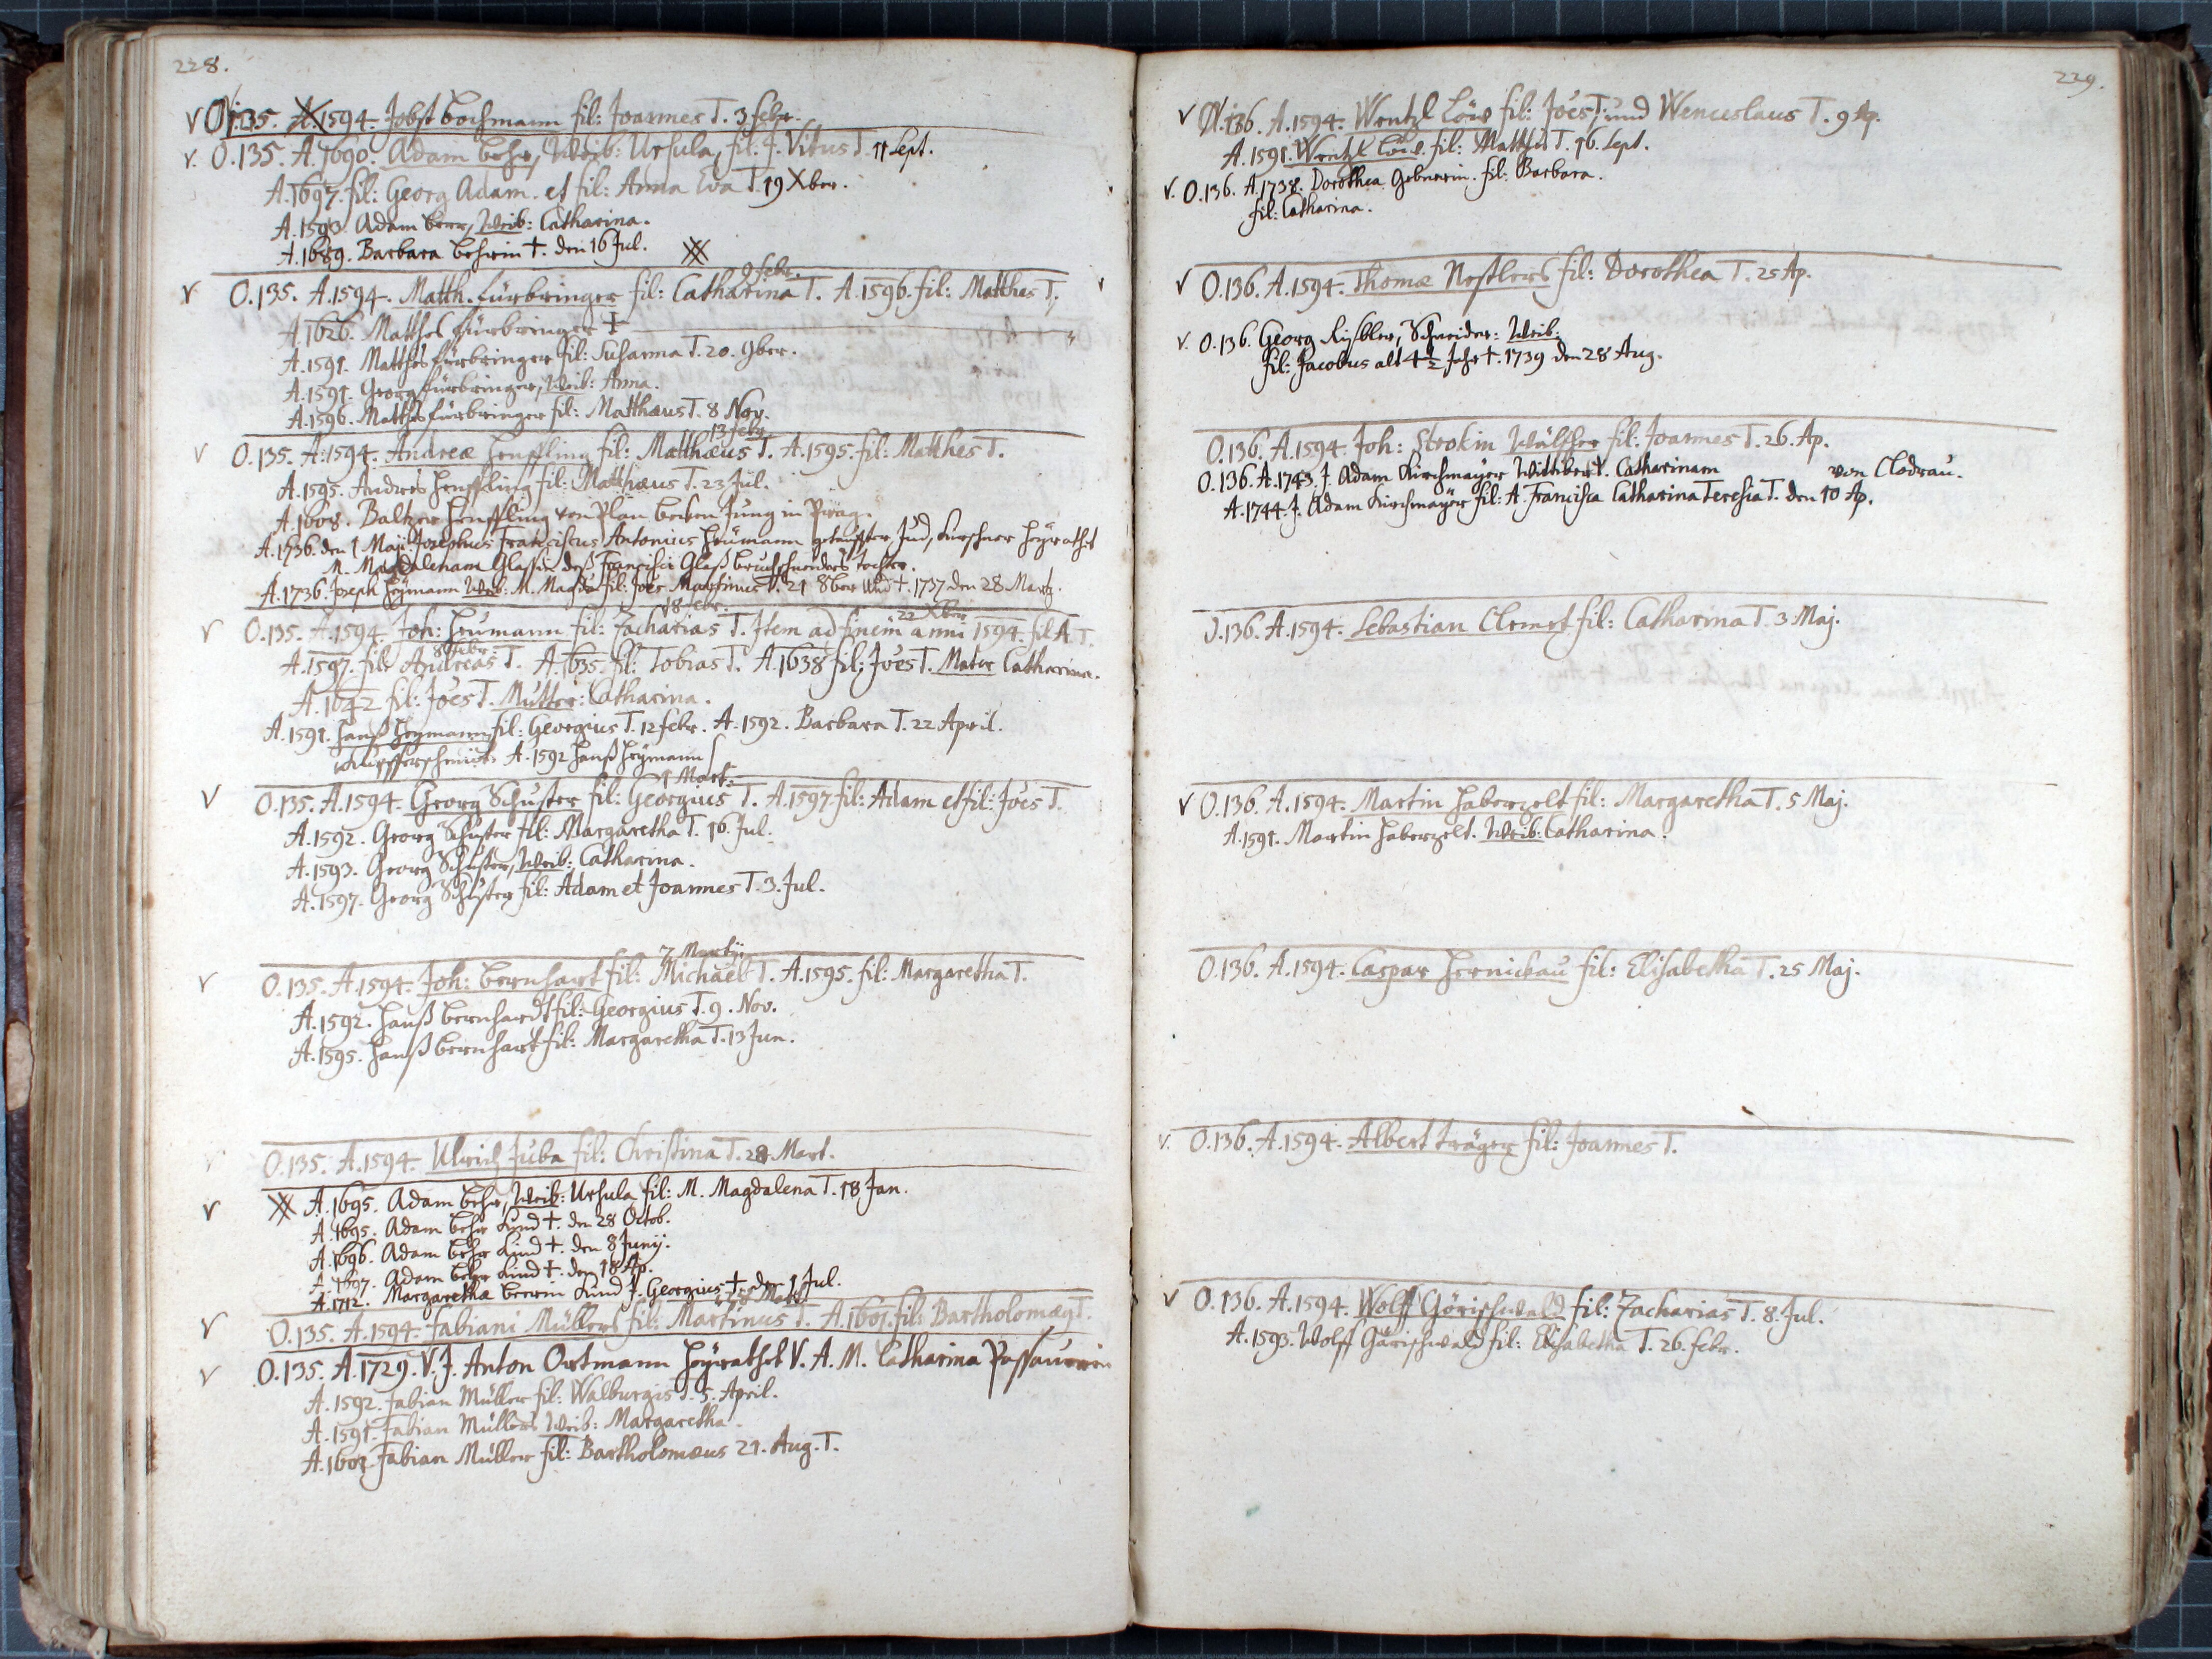 228.
V O.135. A.1594. Jobst Bochmann fil: Joannes T. 3 febr.
V. O.135. A.1690. Adam Behr, Weib: Ursula, fil: J. Vitus T. 11 Sept.
A.1697. fil: Georg Adam. et fil: Anna Eva T. 19 Xber.
A.1593. Adam Beer, Weib: Catharina.
A.1689. Barbara Behrin †. den 16 Jul.
9 febr.
V O.135. A.1594. Matth. fürbringer fil: Catharina T. A.1596. fil: Matthes T.
A.1626. Matthes fürbringer †
A.1591. Matthes fürbringer fil: Susanna T. 20. 9ber.
A.1591. Georg fürbringer, Weib: Anna.
A.1596. Matthes fürbringer fil: Matthæus T. 8 Nov.
13 febr.
V O.135. A.1594. Andreæ Henffling fil: Matthæus T. A.1595. fil: Matthes T.
A.1595. Andres Henffling fil: Matthæus T. 23 Jul.
A.1608. Baltzer Henffling von Plan Becken Jung in Prag.
A.1736. den 1 Maji Josephus Franciscus Antonius Heümann getauffter Jud, Kirschner Heÿrathet
M. Magdalenam Glassin deß Francisci Glaß Bruchschneiders Tochter.
A.1736. Joseph Heÿmann Weib: M. Magda: fil: Joes Martinus T. 21 8ber Und †. 1737 den 28 Martz.
18 febr. 22 Xbris
V O.135. A.1594. Joh: Heumann fil: Zacharias T. Item ad finem anni 1594. fil A. T.
8 febr.
A.1597. fil: Andreas T. A.1635. fil: Tobias T. A.1638 fil: Joes T. Mater Catharina.
A.1642 fil: Joes T. Mutter: Catharina.
A.1591. Hanß Heymann fil: Georgius T. 12 febr. A.1592. Barbara T. 22 April.
Kupfferschmidt A.1592 Hanß Heÿmann
1 Mart.
V O.135. A.1594. Georg Schuster fil: Georgius T. A.1597. fil: Adam et fil: Joes T.
A.1592. Georg Schuster fil: Margaretha T. 16. Jul.
A.1593. Georg Schuster, Weib: Catharina.
A.1597. Georg Schuster fil: Adam et Joannes T. 3. Jul.
7 Martij.
V O.135. A.1594. Joh: Bernhart fil: Michael T. A.1595. fil: Margaretha T.
A.1592. Hanß Bernhardt fil: Georgius T. 9. Nov.
A.1595. Hanß Bernhart fil: Margaretha T. 13 Jun.
V O.135. A.1594. Ulrich Juba fil: Christina T. 28 Mart.
V A.1695. Adam Behr, Weib: Ursula fil: M. Magdalena T. 18 Jan.
A.1695. Adam Behr Kind †. den 28 Octob.
A.1696. Adam Behr Kind †. den 8 Junij.
A.1697. Adam Behr Kind †. den 18 Ap.
A.1712. Margaretha Beerin Kind J. Georgius †. den 1 Jul.
V O.135. A.1594. Fabiani Müllers fil: Martinus T. A.1601. fil: Bartholomæg T.
V O.135. A.1729. V. J. Anton Ortmann Heÿrathet V. A. M. Catharina Passauerin
A.1592. Fabian Müller fil: Walburgis T. 5. April.
A.1591. Fabian Müllers Weib: Margaretha.
A.1601 Fabian Müller fil: Bartholomæus 21. Aug. T.
229.
V O.136. A.1594. Wentzl Löw fil: Joes T. und Wenceslaus T. 9 Ap.
A.1591. Wentzl Löw. fil: Matthes T. 16. Sept.
V. O.136. A.1738. Dorothea Gebnerin. fil: Barbara.
fil: Catharina.
V O.136. A.1594. Thomæ Nestlers fil: Dorothea T. 25 Ap.
V. O.136. Georg Schneider: Weib:
fil: Jacobus alt 4 ½ Jahr †. 1739 den 28 Aug.
O.136. A.1594. Joh: Strokin Walsher fil: Joannes T. 26. Ap.
O.136. A.1743. J. Adam Kirchmayer Wittiber †. Catharinam von Clodrau.
A.1744. J. Adam Kirchmayër fil: A. Francisca Catharina Teresia T. den 10 Ap.
O.136. A.1594. Sebastian Clement fil: Catharina T. 3 Maj.
V O.136. A.1594. Martin Haberzelt fil: Margaretha T. 5 Maj.
A.1591. Martin Haberzelt. Weib: Catharina.
O.136. A.1594. Caspar Hernickau fil: Elisabetha T. 25 Maj.
V. O.136. A.1594. Albert Träger fil: Joannes T.
V O.136. A.1594. Wolff Görischwald fil: Zacharias T. 8. Jul.
A.1593. Wolff Görischwald fil: Elisabetha T. 26. febr.